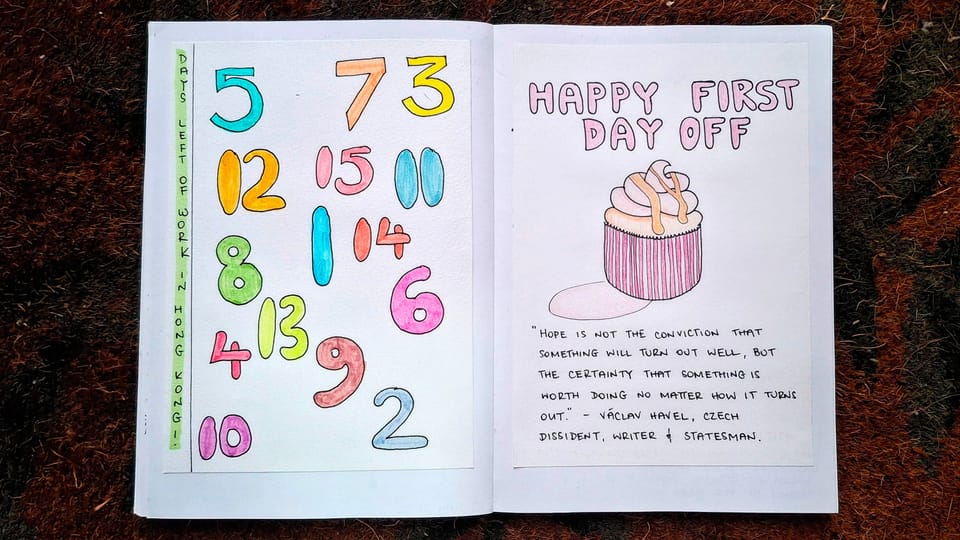 DAYS LEFT OF WORK IN HONG KONG!
5 7 3
12 15 11
1 14
8 6
13
4 9
2
10
HAPPY FIRST
DAY OFF
"HOPE IS NOT THE CONVICTION THAT
SOMETHING WILL TURN OUT WELL, BUT
THE CERTAINTY THAT SOMETHING IS
WORTH DOING NO MATTER HOW IT TURNS
OUT." - VÁCLAV HAVEL, CZECH
DISSIDENT, WRITER & STATESMAN.